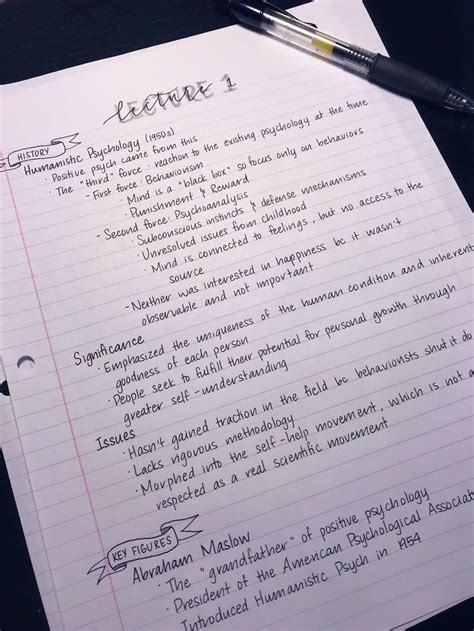 lecture 1
LECTURE 1
HISTORY
Humanistic Psychology (1950s)
· Positive psych came from this
· The "third" force: reaction to the existing psychology at the time
- First force: Behaviorism
· Mind is a "black box" so focus only on behaviors
· Punishment & Reward
- Second force: Psychoanalysis
· Subconscious instincts & defense mechanisms
· Unresolved issues from childhood
· Mind is connected to feelings, but no access to the
source
- Neither was interested in happiness bc it wasn't
observable and not important
Significance
· Emphasized the uniqueness of the human condition and inherent
goodness of each person
· People seek to fulfill their potential for personal growth through
greater self-understanding
Issues
· Hasn't gained traction in the field bc behaviorists shut it do
· Lacks rigorous methodology
· Morphed into the self-help movement, which is not a
respected as a real scientific movement
KEY FIGURES
Abraham Maslow
· The "grandfather" of positive psychology
· President of the American Psychological Associat
· Introduced Humanistic Psych in 1954